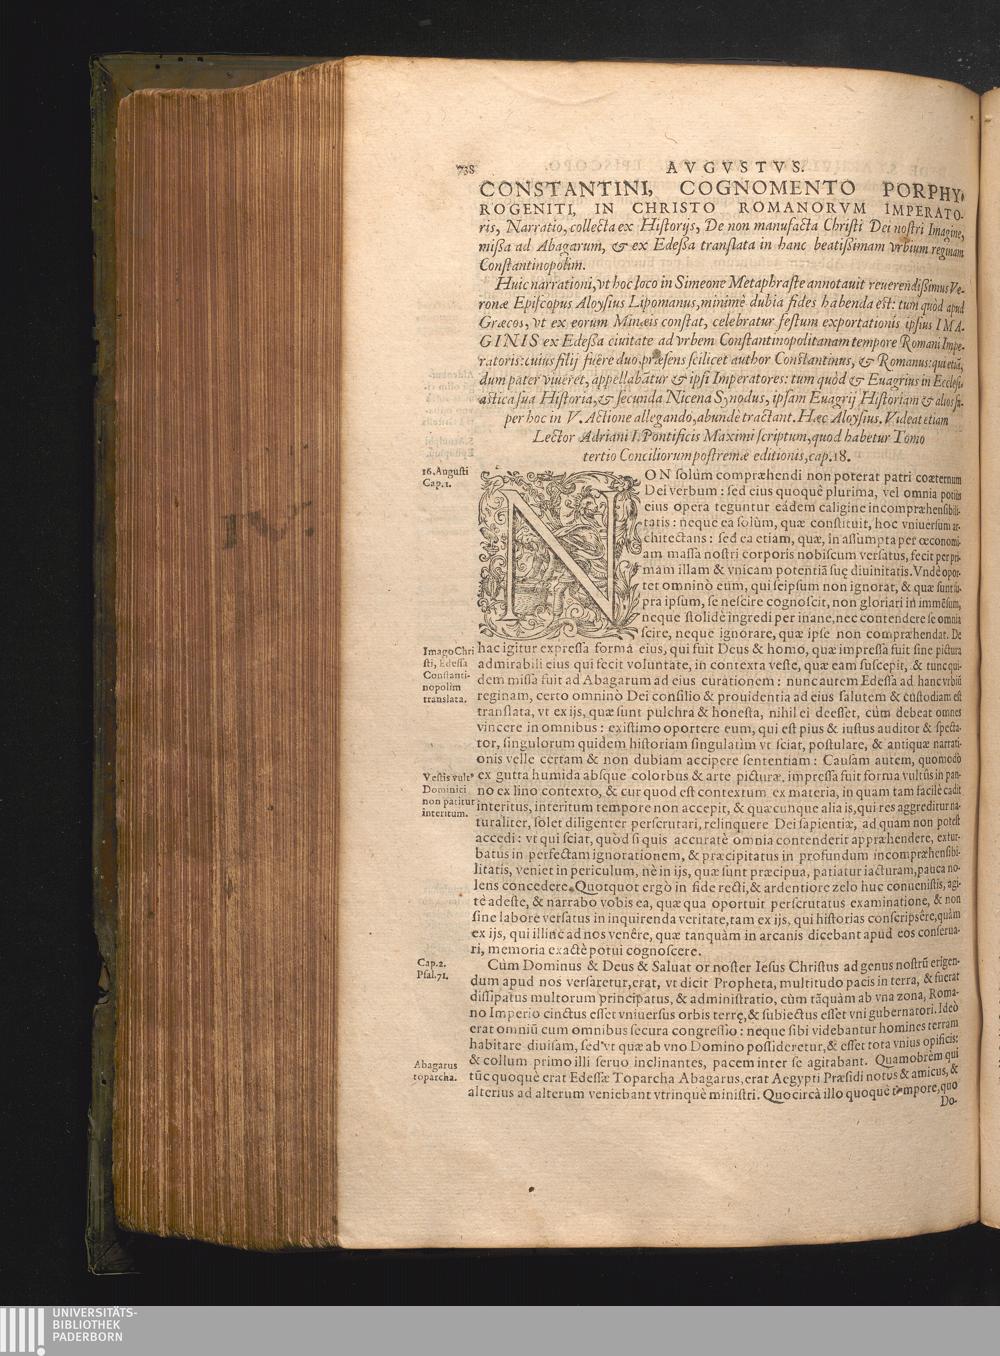 738 AVGVSTVS.
CONSTANTINI, COGNOMENTO PORPHY-
ROGENITI, IN CHRISTO ROMANORVM IMPERATO-
ris, Narratio, collecta ex Historijs, De non manufacta Christi Dei nostri Imagine,
missa ad Abagarum, & ex Edessa translata in hanc beatissimam vrbium reginam
Constantinopolim.
Huic narrationi, vt hoc loco in Simeone Metaphraste annotauit reuerendissimus Ve-
ronæ Episcopus Aloysius Lipomanus, minimè dubia fides habenda est: tum quòd apud
Græcos, vt ex eorum Minæis constat, celebratur festum exportationis ipsius IMA-
GINIS ex Edessa ciuitate ad vrbem Constantinopolitanam tempore Romani Impe-
ratoris: cuius filij fuêre duo, præsens scilicet author Constantinus, & Romanus: qui etiã,
dum pater viueret, appellabãtur & ipsi Imperatores: tum quòd & Euagrius in Ecclesi-
astica sua Historia, & secunda Nicena Synodus, ipsam Euagrij Historiam & alios su-
per hoc in V. Actione allegando, abundè tractant. Hæc Aloysius. Videat etiam
Lector Adriani I. Pontificis Maximi scriptum, quod habetur Tomo
tertio Conciliorum postremæ editionis, cap. 18.
16. Augusti
Cap. 1.
NON solùm compræhendi non poterat patri coæternum
Dei verbum: sed eius quoquè plurima, vel omnia potiùs
eius opera teguntur eâdem caligine incompræhensibili-
tatis: neque ea solùm, quæ constituit, hoc vniuersum ar-
chitectans: sed ea etiam, quæ, in assumpta per œconomi-
am massa nostri corporis nobiscum versatus, fecit per pri-
mam illam & vnicam potentiã suę diuinitatis. Vndè opor-
tet omninò eum, qui seipsum non ignorat, & quæ sunt su-
pra ipsum, se nescire cognoscit, non gloriari in immẽsum,
neque stolidè ingredi per inane, nec contendere se omnia
scire, neque ignorare, quæ ipse non compræhendat. De
Imago Chri
sti, Edessa
Constanti-
nopolim
translata.
hac igitur expressa formâ eius, qui fuit Deus & homo, quæ impressa fuit sine pictura
admirabili eius qui fecit voluntate, in contexta veste, quæ eam suscepit, & tunc qui-
dem missa fuit ad Abagarum ad eius curationem: nunc autem Edessa ad hanc vrbiũ
reginam, certo omninò Dei consilio & prouidentia ad eius salutem & custodiam est
translata, vt ex ijs, quæ sunt pulchra & honesta, nihil ei deesset, cùm debeat omnes
vincere in omnibus: existimo oportere eum, qui est pius & iustus auditor & specta-
tor, singulorum quidem historiam singulatim vt sciat, postulare, & antiquæ narrati-
onis velle certam & non dubiam accipere sententiam: Causam autem, quomodò
Vestis vult'
Dominici
non patitur
interitum.
ex gutta humida absque colorbus & arte picturæ, impressa fuit forma vultûs in pan-
no ex lino contexto, & cur quod est contextum ex materia, in quam tam facilè cadit
interitus, interitum tempore non accepit, & quæcunque alia is, qui res aggreditur na-
turaliter, solet diligenter perscrutari, relinquere Dei sapientiæ, ad quam non potest
accedi: vt qui sciat, quòd si quis accuratè omnia contenderit appræhendere, extur-
batus in perfectam ignorationem, & præcipitatus in profundum incompræhensibi-
litatis, veniet in periculum, nè in ijs, quæ sunt præcipua, patiatur iacturam, pauca no-
lens concedere. Quotquot ergò in fide recti, & ardentiore zelo huc conuenistis, agi-
tè adeste, & narrabo vobis ea, quæ qua oportuit perscrutatus examinatione, & non
sine labore versatus in inquirenda veritate, tam ex ijs, qui historias conscripsêre, quàm
ex ijs, qui illinc ad nos venêre, quæ tanquàm in arcanis dicebant apud eos conserua-
ri, memoria exactè potui cognoscere.
Cap. 2.
Psal. 71.
Cùm Dominus & Deus & Saluat or noster Iesus Christus ad genus nostrũ erigen-
dum apud nos versaretur, erat, vt dicit Propheta, multitudo pacis in terra, & fuerat
dissipatus multorum principatus, & administratio, cùm tãquàm ab vna zona, Roma-
no Imperio cinctus esset vniuersus orbis terrę, & subiectus esset vni gubernatori. Ideò
erat omniũ cum omnibus secura congressio: neque sibi videbantur homines terram
habitare diuisam, sed vt quæ ab vno Domino possideretur, & esset tota vnius opificis:
Abagarus
toparcha.
& collum primo illi seruo inclinantes, pacem inter se agitabant. Quamobrèm qui
tũc quoquè erat Edessæ Toparcha Abagarus, erat Aegypti Præsidi notus & amicus, &
alterius ad alterum veniebant vtrinquè ministri. Quocircà illo quoquè tempore, quo
Do-
IV.
UNIVERSITÄTS-
BIBLIOTHEK
PADERBORN